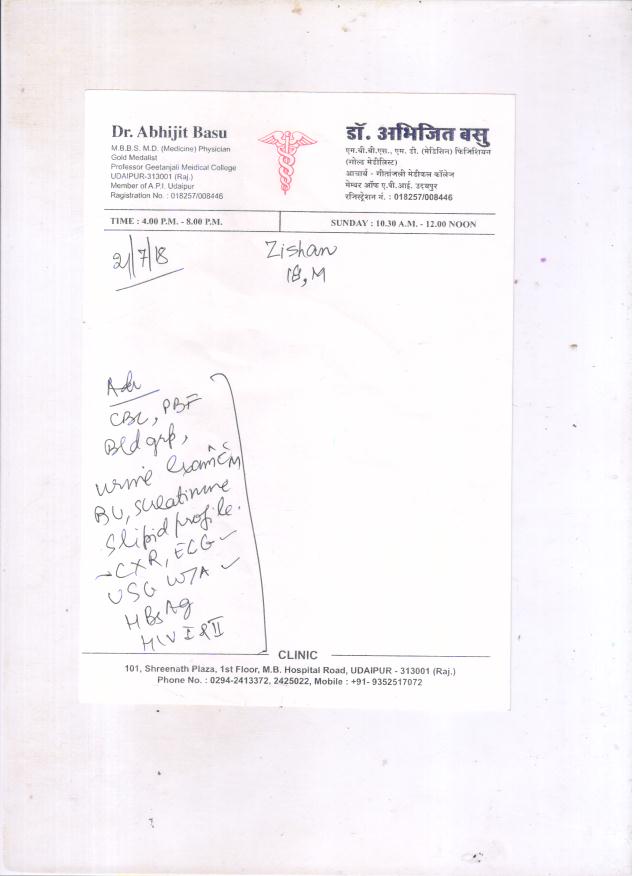 Dr. Abhijit Basu
M.B.B.S. M.D. (Medicine) Physician
Gold Medalist
Professor Geetanjali Meidical College
UDAIPUR-313001 (Raj.)
Member of A.P.I. Udaipur
Ragistration No. : 018257/008446
डॉ. अभिजित बसु
एम.बी.बी.एस., एम. डी. (मेडिसिन) फिजिशियन
(गोल्ड मेडीलिस्ट)
आचार्य - गीतांजली मेडीकल कॉलेज
मेम्बर ऑफ ए.पी.आई. उदयपुर
रजिस्ट्रेशन नं. : 018257/008446
TIME : 4.00 P.M. - 8.00 P.M.
SUNDAY : 10.30 A.M. - 12.00 NOON
21/7/18
Zishan
18, M
Adv
CBC, PBF
Bld grp,
urine exam c̄ M
BU, S creatinine
S lipid profile.
CXR, ECG
USG W/A
HBsAg
HIV I & II
CLINIC
101, Shreenath Plaza, 1st Floor, M.B. Hospital Road, UDAIPUR - 313001 (Raj.)
Phone No. : 0294-2413372, 2425022, Mobile : +91- 9352517072